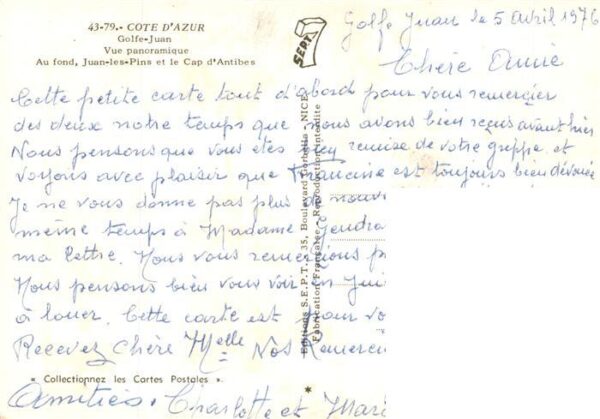 43-79.- COTE D'AZUR
Golfe-Juan
Vue panoramique
Au fond, Juan-les-Pins et le Cap d'Antibes
SEPT
Golfe Juan le 5 avril 1976
Chère Amie
Cette petite carte tout d'abord pour vous remercier
des deux notre temps que nous avons bien reçus avant hier
Nous pensons que vous êtes remise de votre grippe et
voyons avec plaisir que Francine est toujours bien dévouée
Je ne vous donne pas plus de nouv
même temps à Madame Gendra
ma lettre. Nous vous remercions p
Nous pensons bien vous voir en Jui
à louer. Cette carte est pour vo
Recevez Chère Melle Nos Remerci
Amitiés. Charlotte et Mar
« Collectionnez les Cartes Postales ».
Editions S.E.P.T. - 35, Boulevard Gorbella - NICE
Fabrication Française - Reproduction interdite